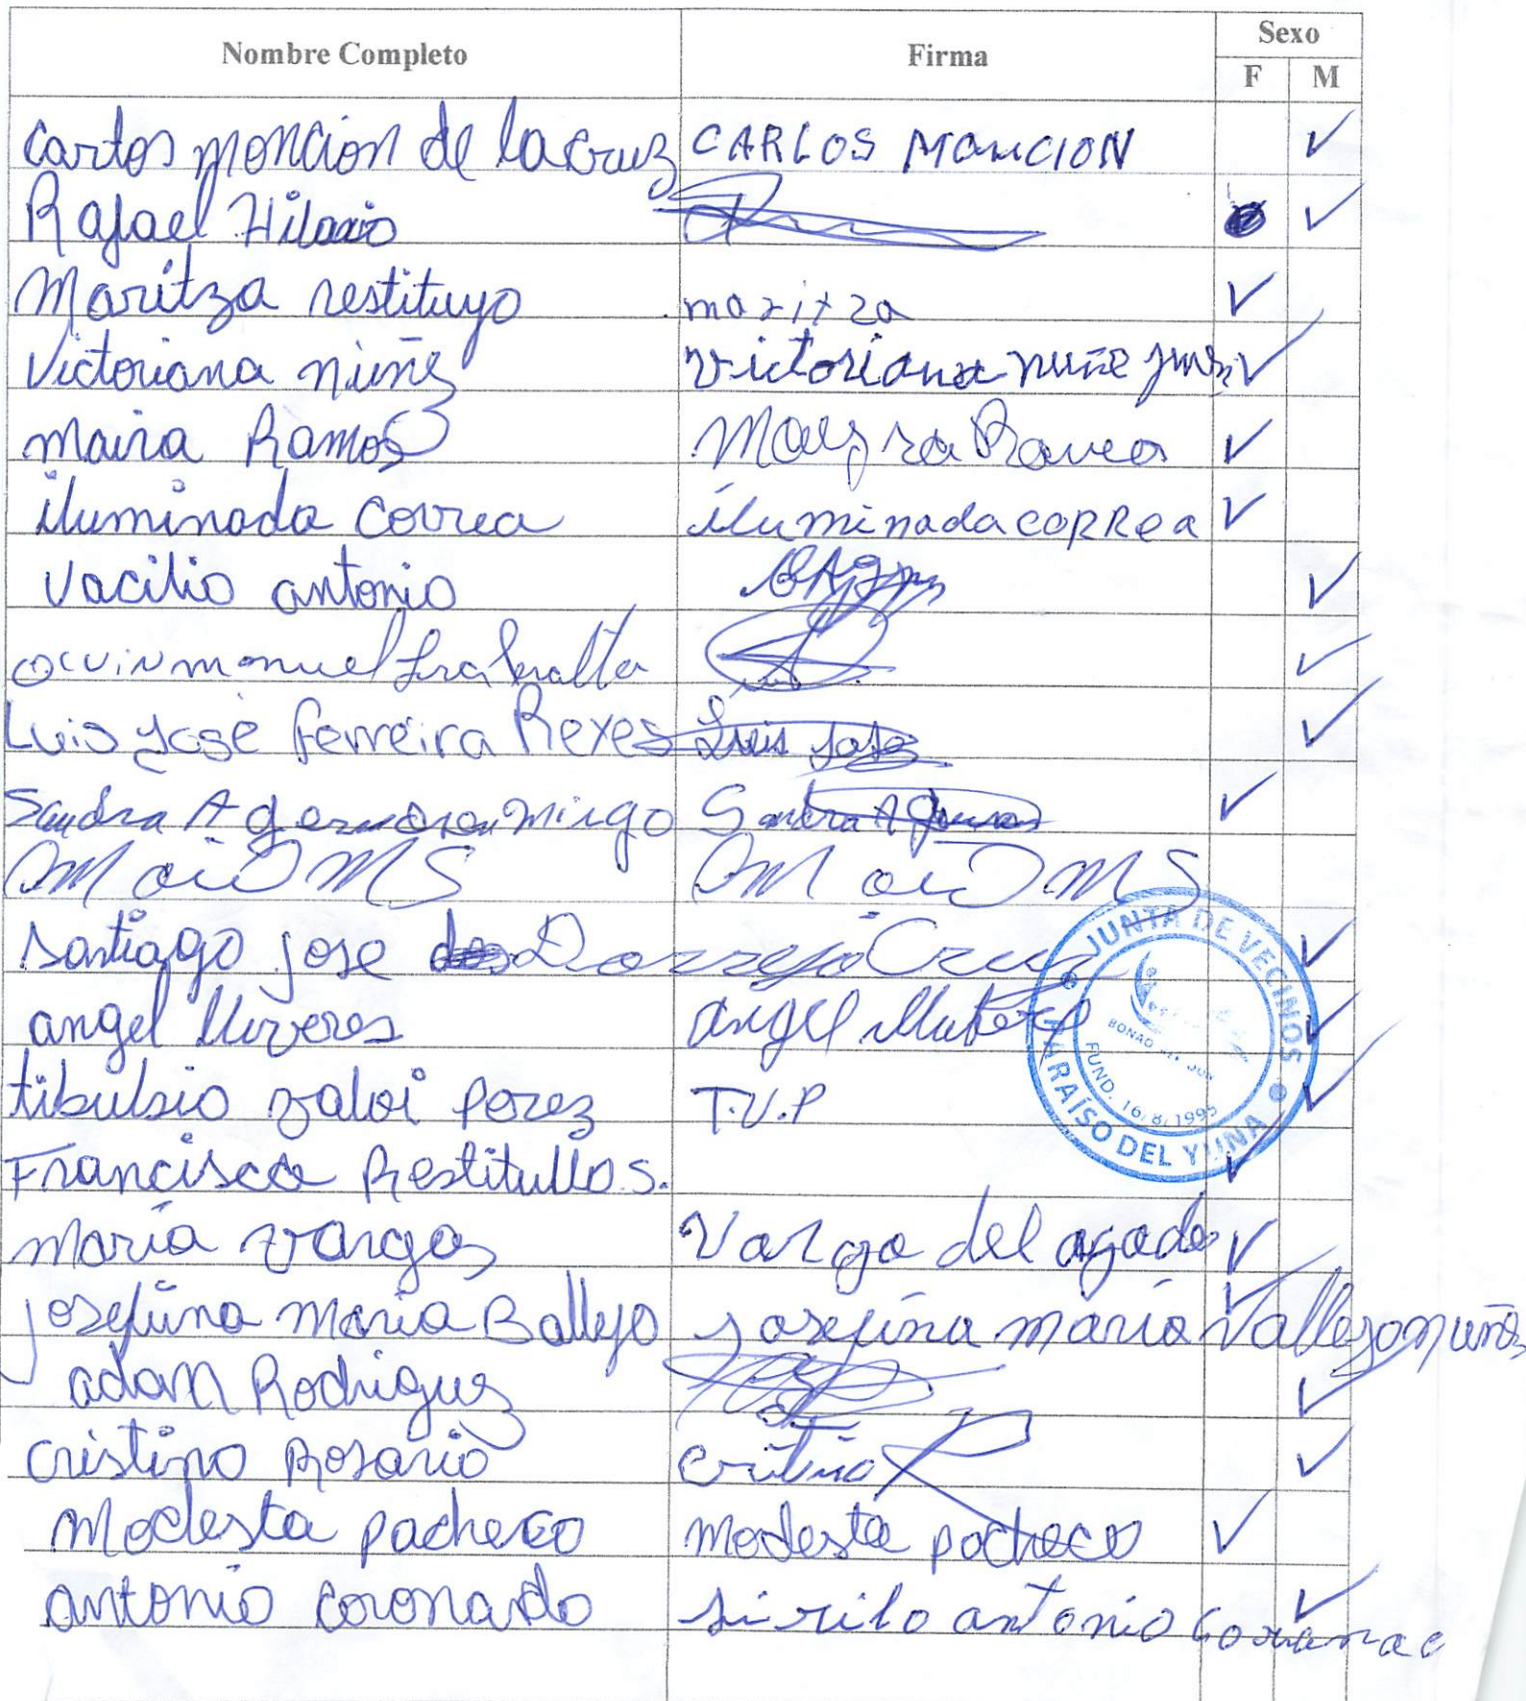 Nombre Completo Firma Sexo
F M
Carlos moncion de la cruz CARLOS MONCION ✓
Rafael Hilario ✓
Maritza restituyo maritza ✓
Victoriana nuñez victoriana nuñe ✓
maira Ramos Mayra ✓
iluminada correa iluminada coRRea ✓
Vacilio antonio ✓
manuel ✓
Luis José ferreira Reyes Luis Jose ✓
Sandra A Sandra A ✓
santiago jose Cruz ✓
angel lluveres angel ✓
tibulsio valoi perez T.V.P ✓
Francisca Restitullo S. ✓
maría vargas Varga del ✓
josefina maria Ballejo josefina maría Vallejo nuñez ✓
adan Rodriguez ✓
cristino Rosario ✓
Modesta pacheco modesta pacheco ✓
antonio coronado sirilo antonio ✓
JUNTA DE VECINOS
PARAÍSO DEL YUNA
FUND. 16/8/1995
BONAO